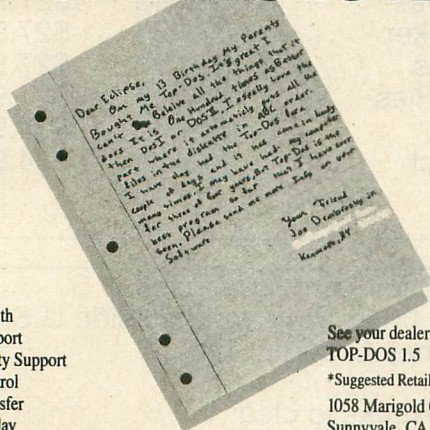 Dear Eclipse,
On my 13 Birthday My Parents
Bought Me Top-Dos. It's great I
can't Beleive all the things that it
does. It is One Hundred times as Better
then Dos I or Dos II, I espally have the
part where it automaticly puts all the
files in the diskette in ABC order.
I have only had the Top-Dos for a
couple of days and it has came in handy
many times. I may have had my computer
for three or four years, But Top-Dos is the
best program so far that I have ever
seen. Please send me more Info on your
Software
Your Friend
Joe Jr.
Kenmore, NY
th
port
ty Support
rol
sfer
lay
See your dealer
TOP-DOS 1.5
*Suggested Retail
1058 Marigold
Sunnyvale, CA